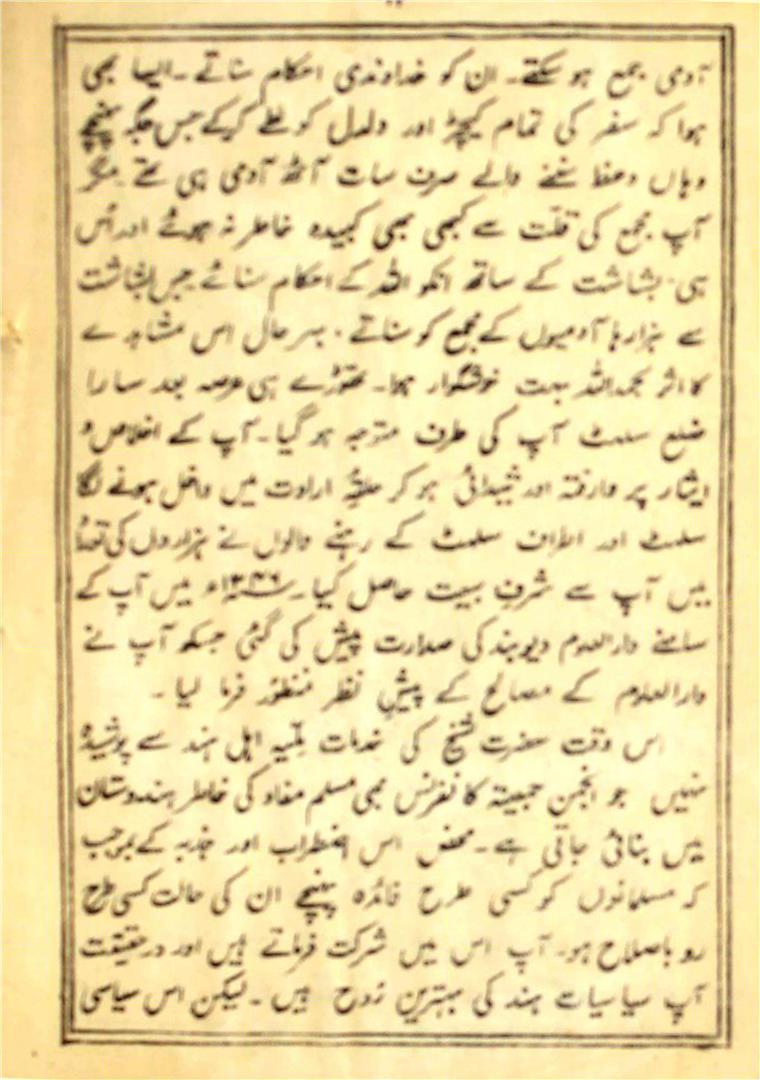 آدمی جمع ہو سکتے۔ ان کو خداوندی احکام سناتے۔ ایسا بھی
ہوا کہ سفر کی تمام کیچڑ اور دلدل کو طے کرکے جس جگہ پہنچے
وہاں وعظ سننے والے صرف سات آٹھ آدمی ہی تھے مگر
آپ مجمع کی قلت سے کبھی بھی کبیدہ خاطر نہ ہوئے اور اُس
ہی بشاشت کے ساتھ انکو اللہ کے احکام سنائے جس بشاشت
سے ہزارہا آدمیوں کے مجمع کو سناتے۔ بہرحال اس مشاہدے
کا اثر بحمداللہ بہت خوشگوار ہوا۔ تھوڑے ہی عرصہ بعد سارا
ضلع سلہٹ آپ کی طرف متوجہ ہو گیا۔ آپ کے اخلاص و
ایثار پر وارفتہ اور شیدائی ہو کر حلقۂ ارادت میں داخل ہونے لگا
سلہٹ اور اطراف سلہٹ کے رہنے والوں نے ہزاروں کی تعداد
میں آپ سے شرفِ بیعت حاصل کیا۔ ۱۳۴۶ھ میں آپ کے
سامنے دارالعلوم دیوبند کی صدارت پیش کی گئی جسکو آپ نے
دارالعلوم کے مصالح کے پیشِ نظر منظور فرما لیا۔
اس وقت حضرت شیخ کی خدمات ملّیہ اہل ہند سے پوشیدہ
نہیں جو انجمن جمیعتہ کانفرنس بھی مسلم مفاد کی خاطر ہندوستان
میں بنائی جاتی ہے۔ محض اس اضطراب اور جذبہ کے بموجب
کہ مسلمانوں کو کسی طرح فائدہ پہنچے ان کی حالت کسی طرح
رو باصلاح ہو۔ آپ اس میں شرکت فرماتے ہیں اور درحقیقت
آپ سیاسیات ہند کی بہترین روح ہیں۔ لیکن اس سیاسی